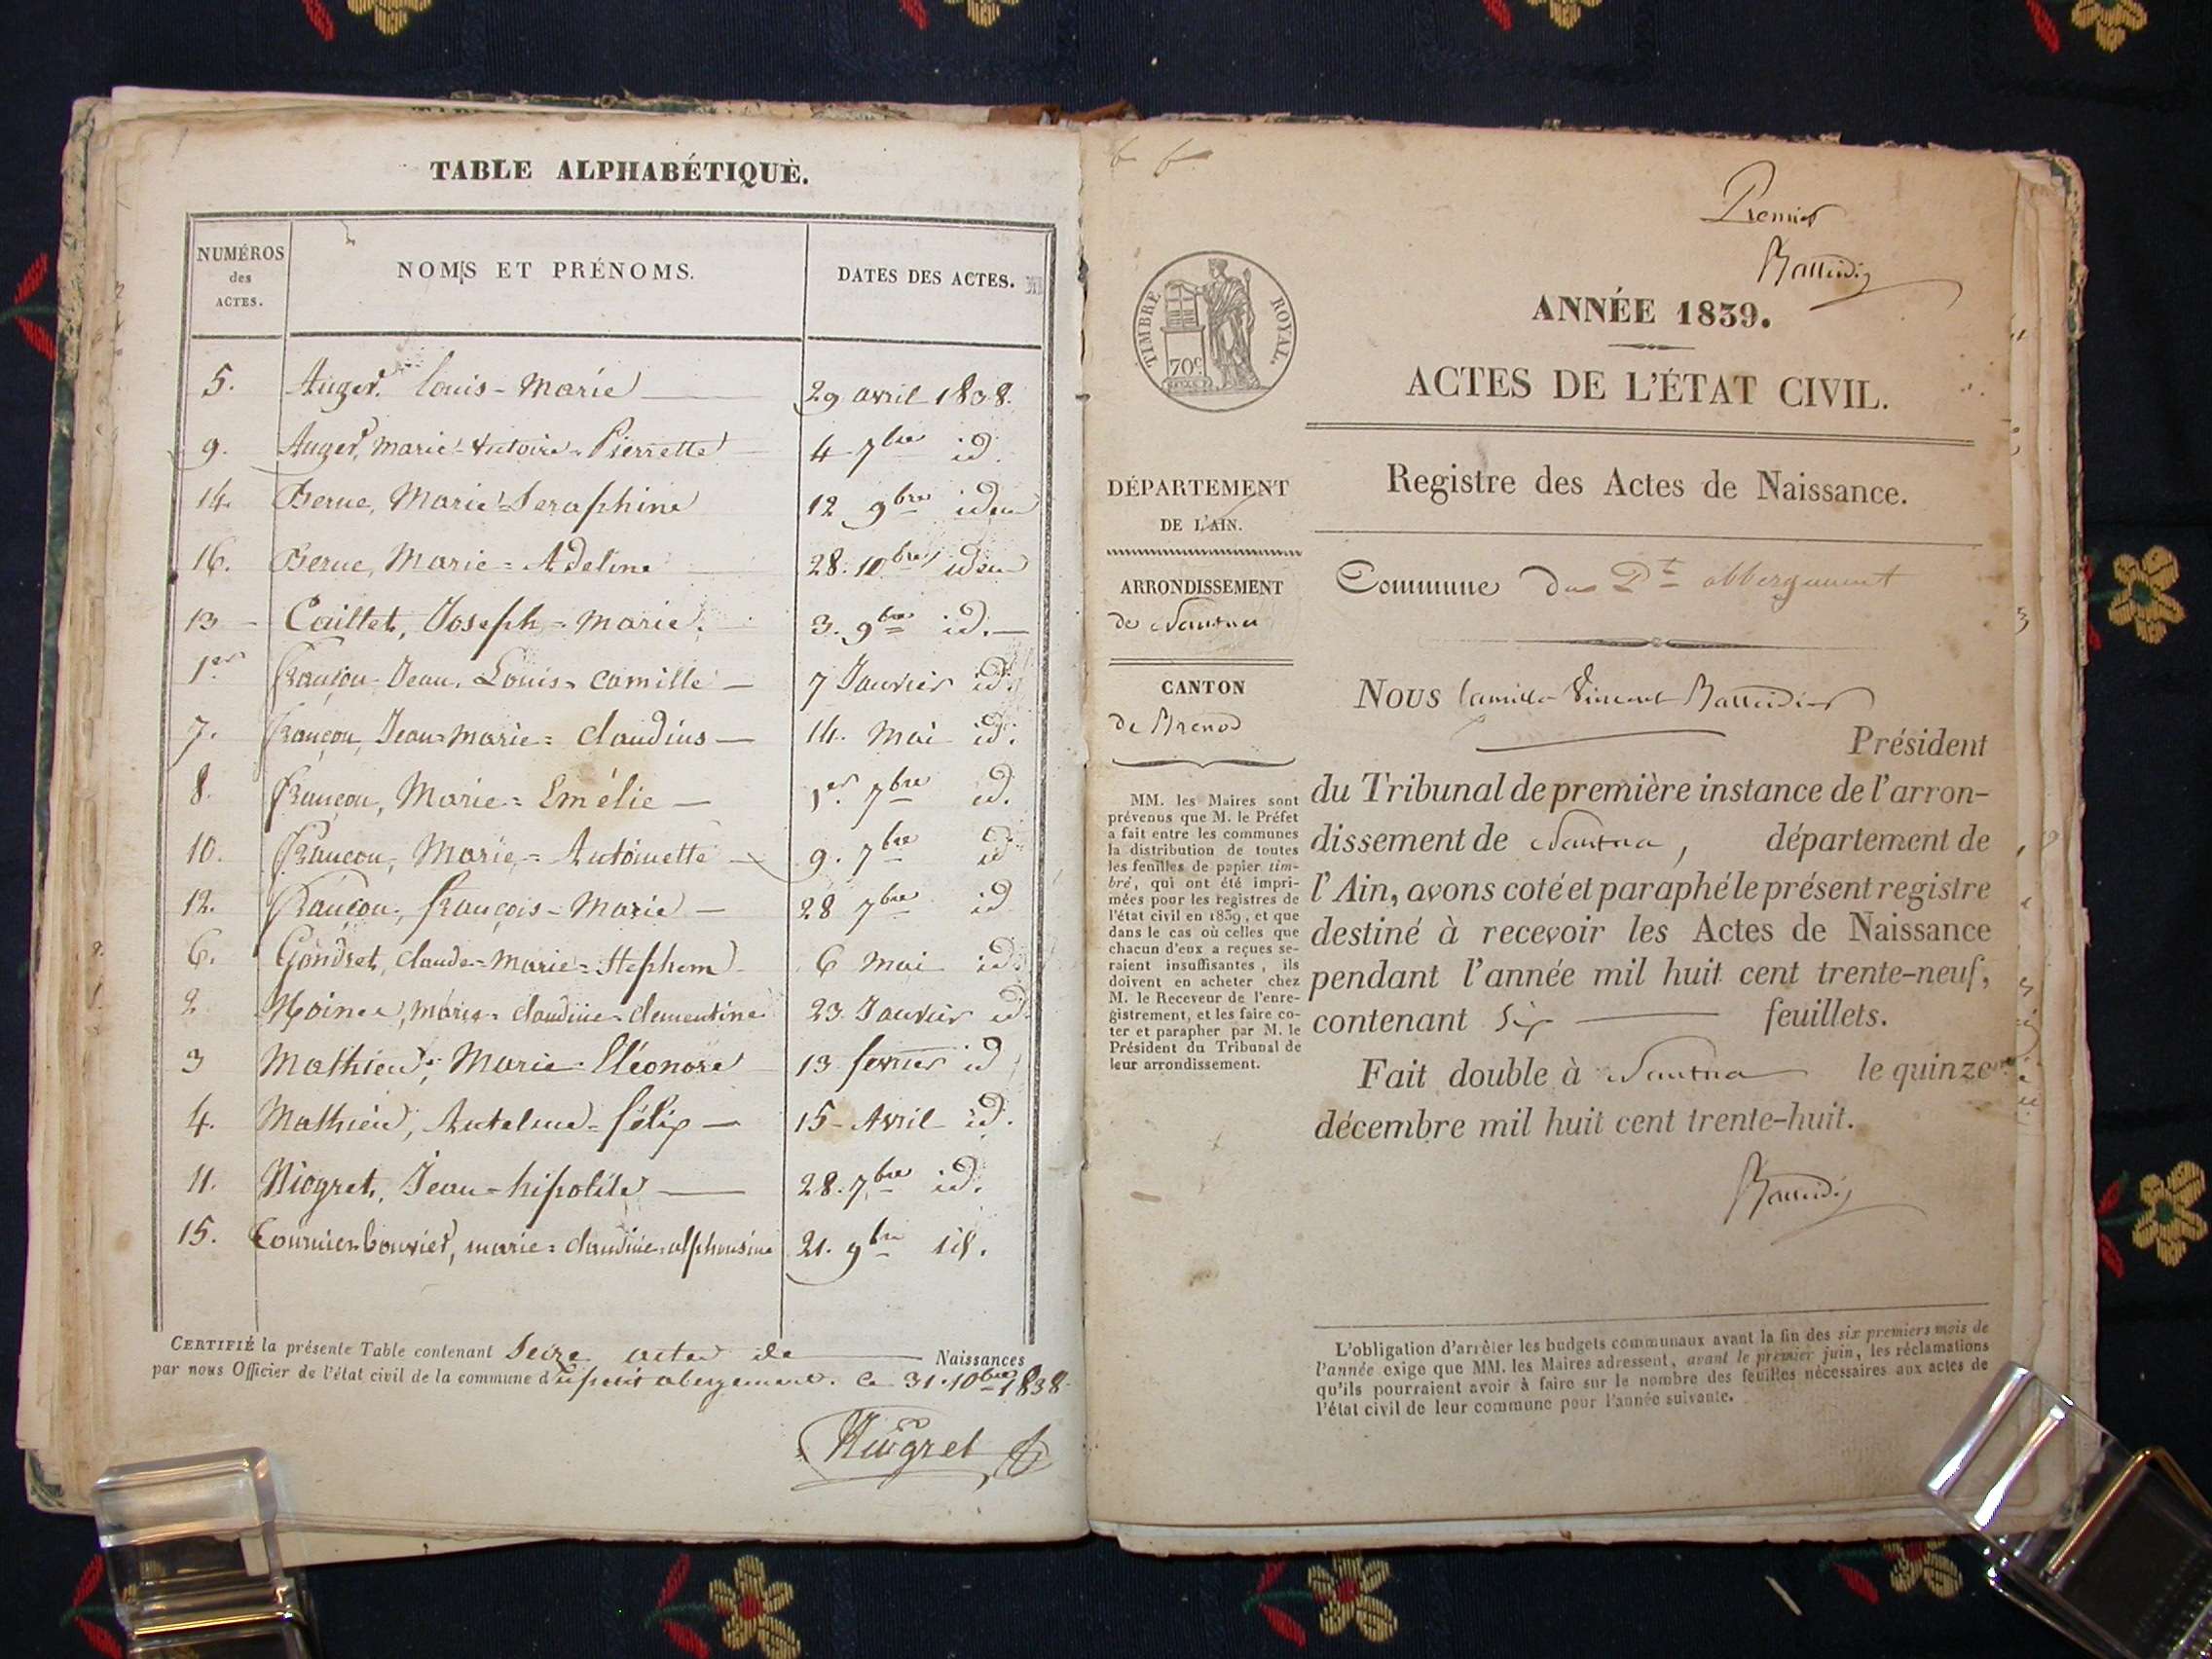 TABLE ALPHABÉTIQUE.
NUMÉROS des ACTES.
NOMS ET PRÉNOMS.
DATES DES ACTES.
5. Auger. Louis-Marie 29 avril 1838.
9. Auger, marie-Victoire-Pierrette 4 7bre id.
14. Berne, Marie-Seraphine 12 9bre idem
16. Berne, Marie=Adeline 28. 10bre idem
13 Caillet, Joseph-marie. 3. 9bre id.
1er Françon Jean. Louis-Camille 7 Janvier id.
7. Françon, Jean-marie=claudius 14. mai id.
8. Françon, Marie=Emélie 1er. 7bre id.
10. Françon, Marie-Antoinette 9. 7bre id
12. Françon, françois-Marie 28 7bre id
6. Gondret, claude-marie= 6 mai id.
2 Moine, marie-claudine-clementine 23 Janvier id.
3 Mathieu, Marie-Eléonore 13 fevrier id
4. Mathieu, Antelme-félix 15 Avril id.
11. Niogret, Jean-hipolite 28. 7bre id.
15. bouvier, marie=claudine=alphonsine 21. 9bre id.
CERTIFIÉ la présente Table contenant Seize actes de Naissances
par nous Officier de l'état civil de la commune d abergement. Ce 31. 10bre 1838
Niogret
Premier
ANNÉE 1839.
TIMBRE ROYAL.
70c
ACTES DE L'ÉTAT CIVIL.
Registre des Actes de Naissance.
DÉPARTEMENT
DE L'AIN.
ARRONDISSEMENT
de Nantua
CANTON
de Brenod
MM. les Maires sont
prévenus que M. le Préfet
a fait entre les communes
la distribution de toutes
les feuilles de papier tim-
bré, qui ont été impri-
mées pour les registres de
l'état civil en 1839, et que
dans le cas où celles que
chacun d'eux a reçues se-
raient insuffisantes, ils
doivent en acheter chez
M. le Receveur de l'enre-
gistrement, et les faire co-
ter et parapher par M. le
Président du Tribunal de
leur arrondissement.
Commune du Pt abbergement
Nous Camille Vincent
Président
du Tribunal de première instance de l'arron-
dissement de Nantua, département de
l'Ain, avons coté et paraphé le présent registre
destiné à recevoir les Actes de Naissance
pendant l'année mil huit cent trente-neuf,
contenant Six feuillets.
Fait double à Nantua le quinze
décembre mil huit cent trente-huit.
L'obligation d'arrêter les budgets communaux avant la fin des six premiers mois de
l'année exige que MM. les Maires adressent, avant le premier juin, les réclamations
qu'ils pourraient avoir à faire sur le nombre des feuilles nécessaires aux actes de
l'état civil de leur commune pour l'année suivante.